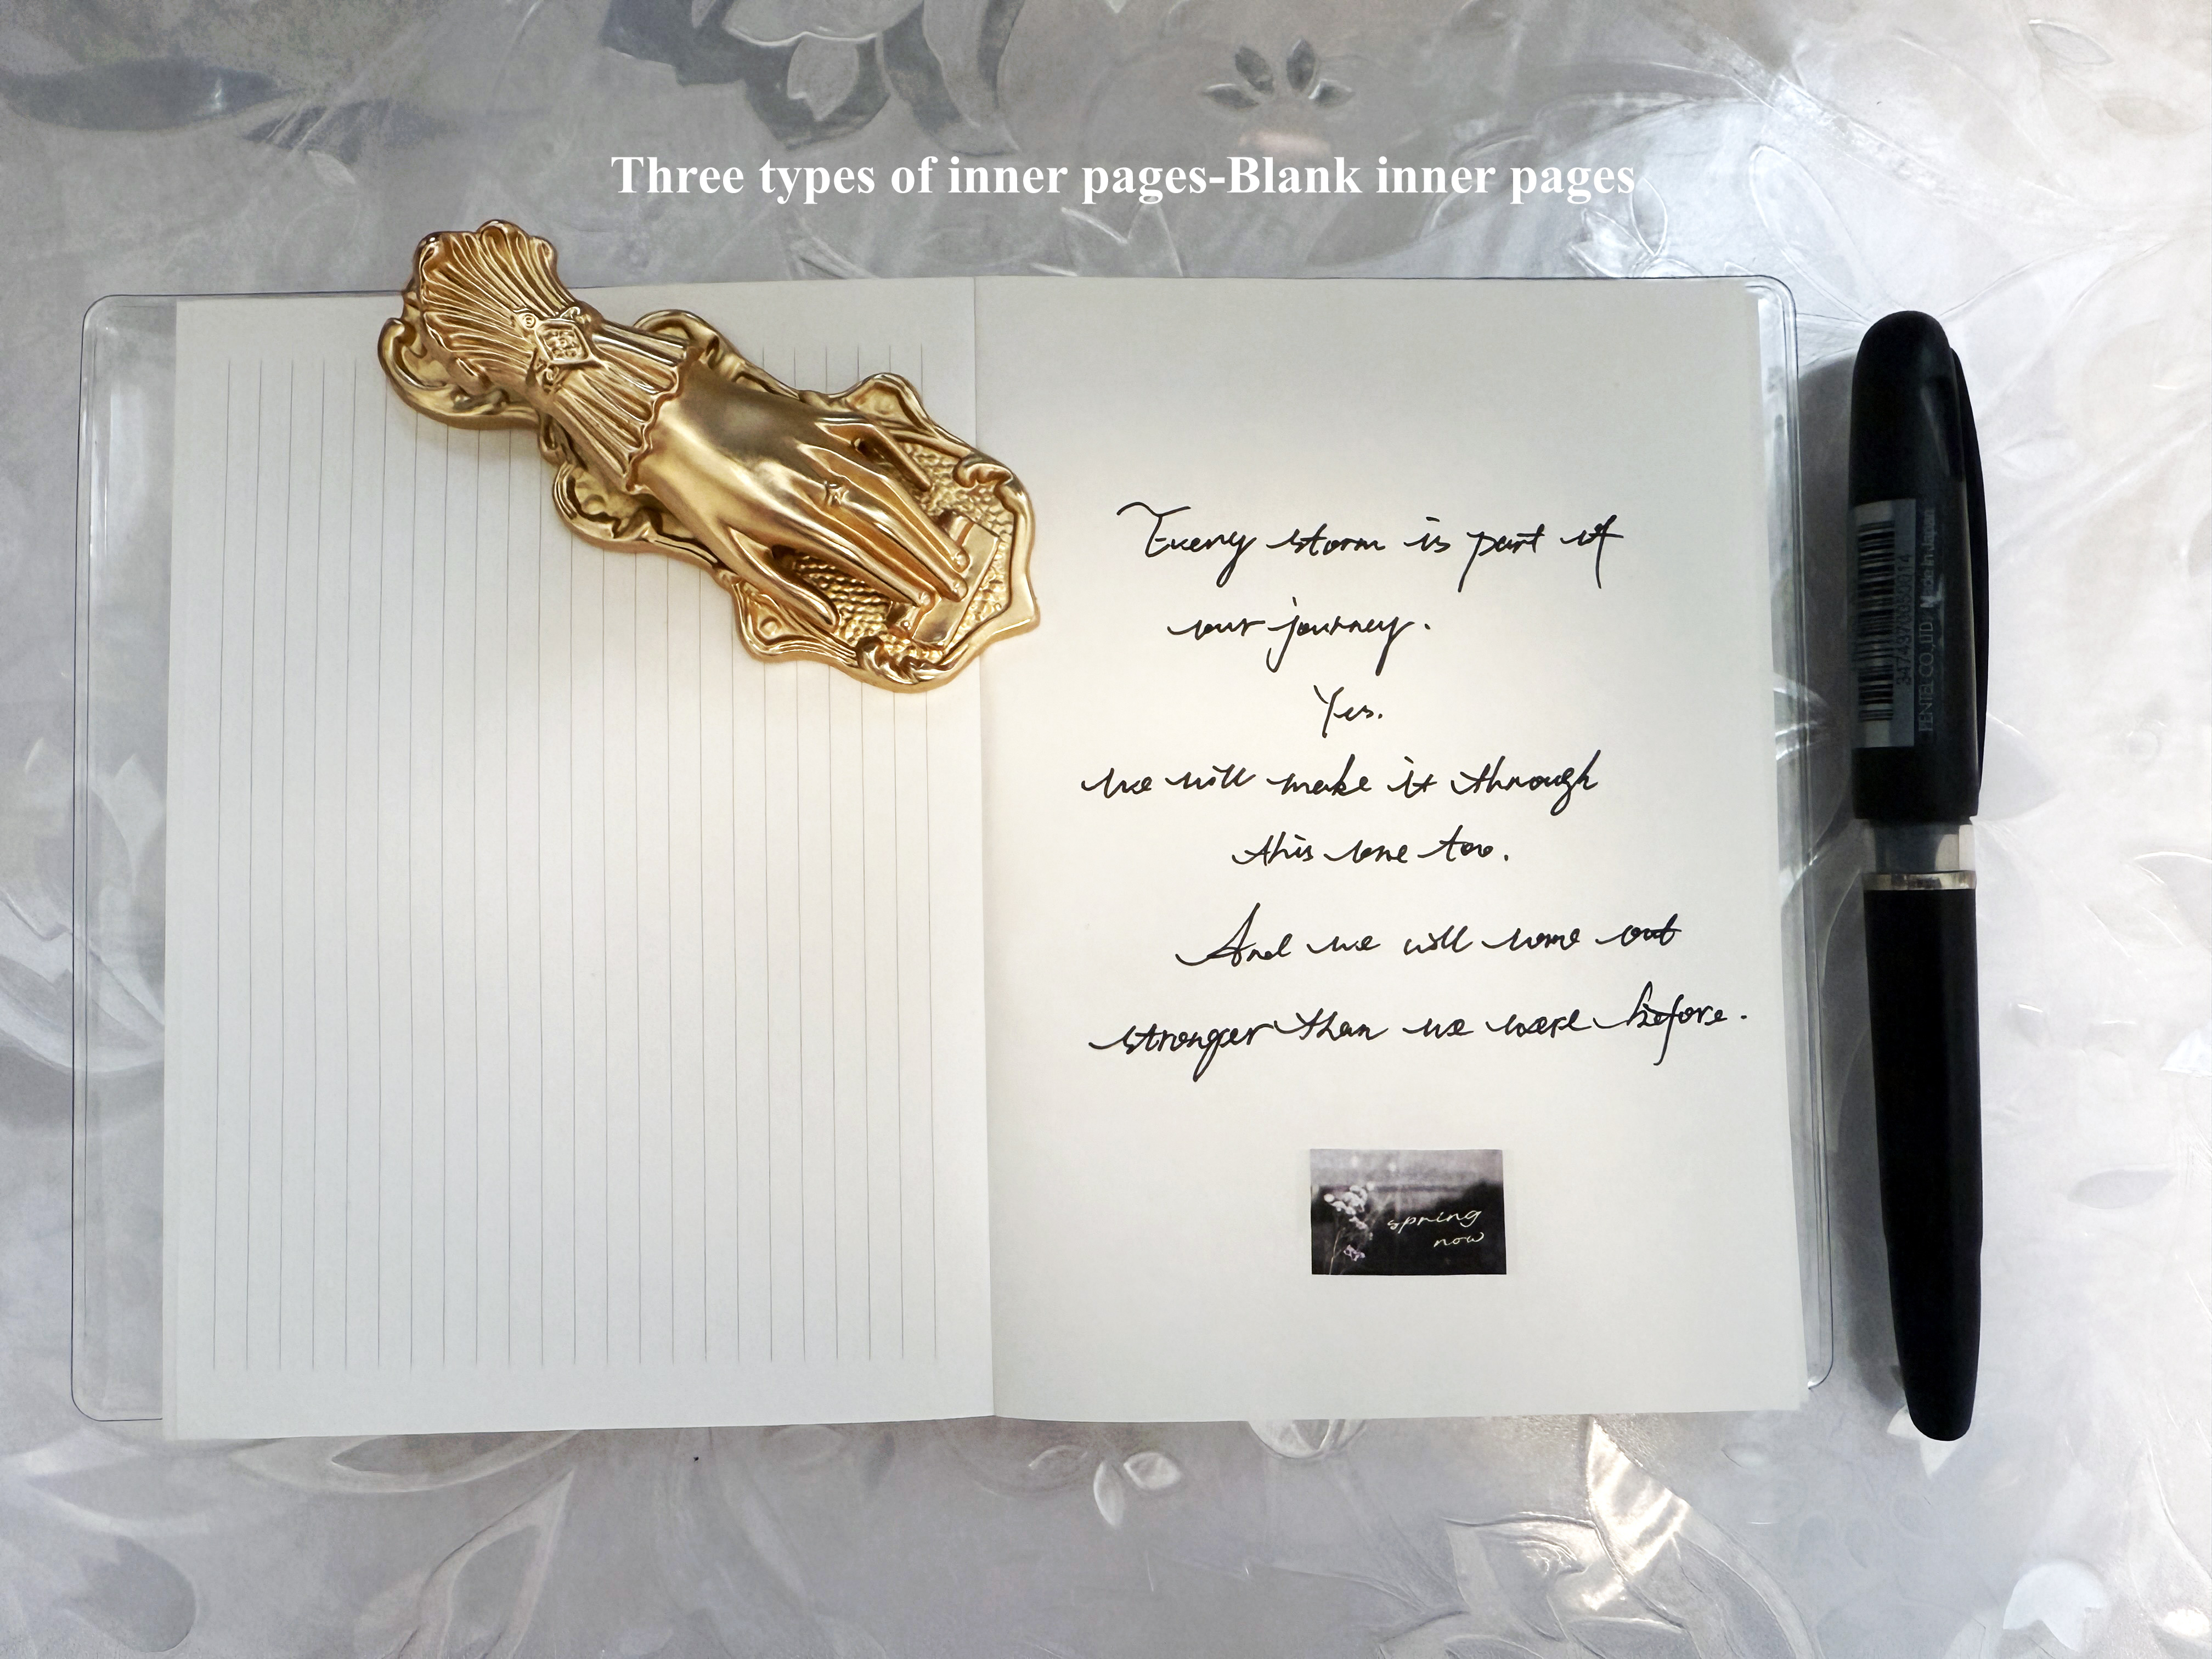 Three types of inner pages-Blank inner pages
Every storm is part of
our journey.
Yes.
we will make it through
this one too.
And we will come out
stronger than we were before.
spring
now
PENTEL CO.,LTD Made in Japan